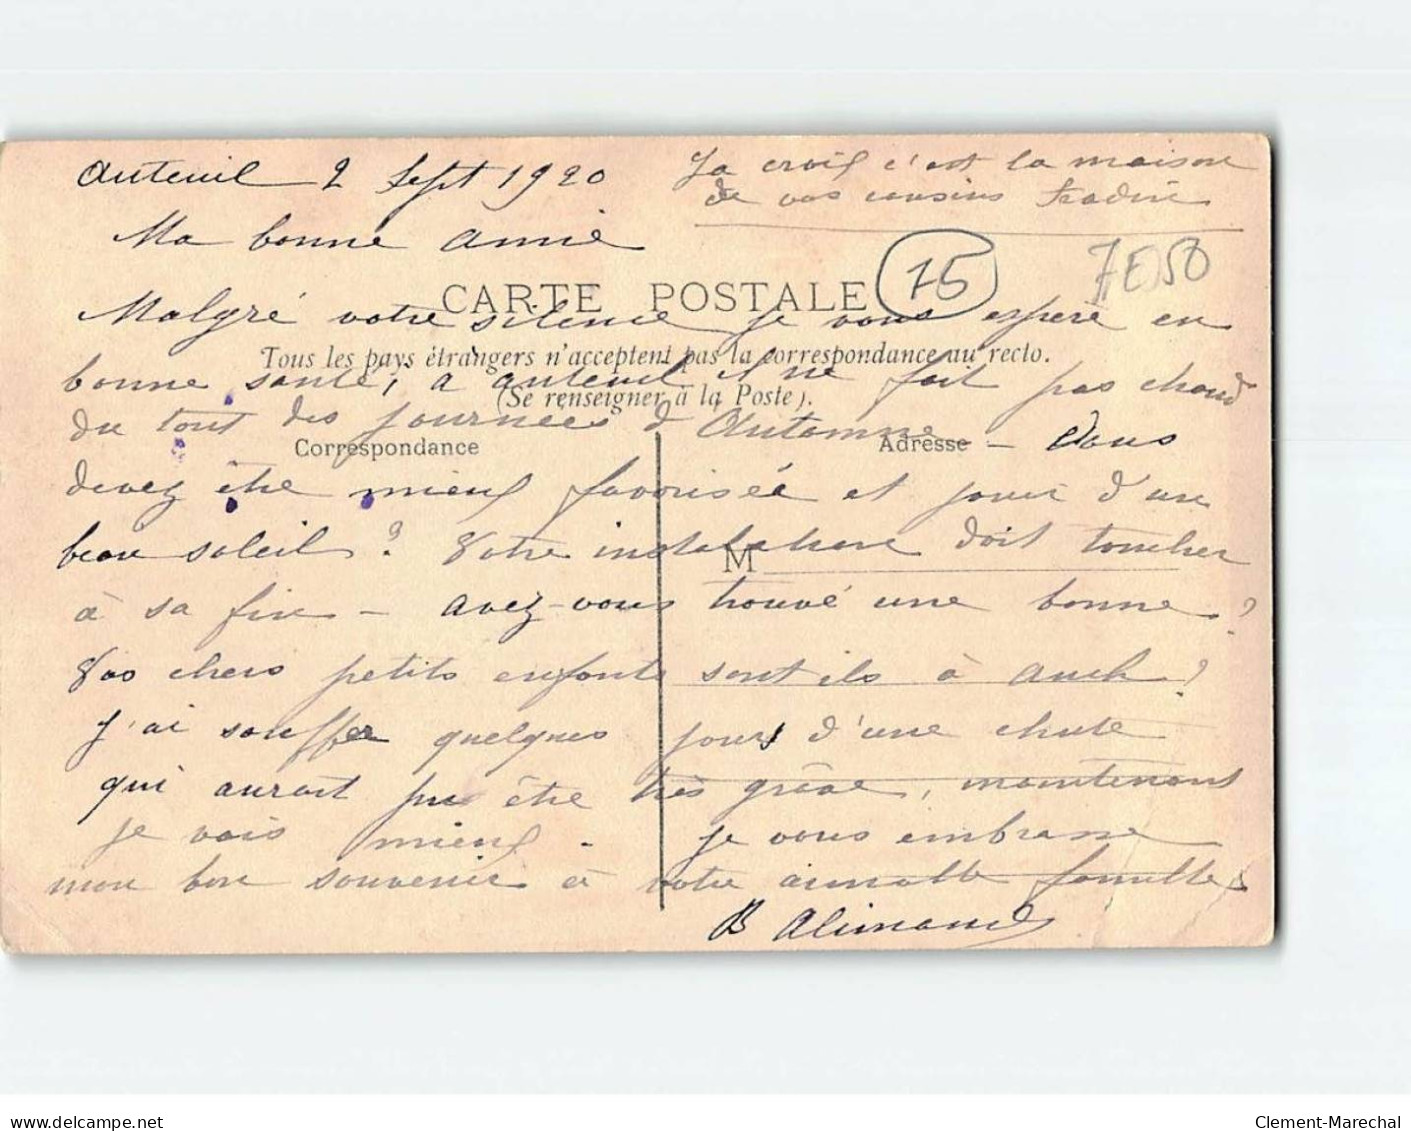 Auteuil 2 Sept 1920
Ja crois c'est la maison
de vos cousins
Ma bonne Amie
75
7E50
CARTE POSTALE
Malgré votre silence je vous espère en
Tous les pays étrangers n'acceptent pas la correspondance au recto.
bonne santé, a auteuil il ne fait pas chaud
(Se renseigner à la Poste).
du tout des journées d'Automne — Vous
Correspondance
Adresse
devez être mieux favorisée et jouir d'un
beau soleil ? Votre installation doit toucher
M
à sa fin — avez-vous trouvé une bonne ?
Vos chers petits enfants sont ils à Auch ?
J'ai souffer quelques jours d'une chute
qui aurait pu être très grave, maintenant
je vais mieux . je vous embrasse
mon bon souvenir à votre aimable famille
B Alimand
www.delcampe.net
Clement-Marechal